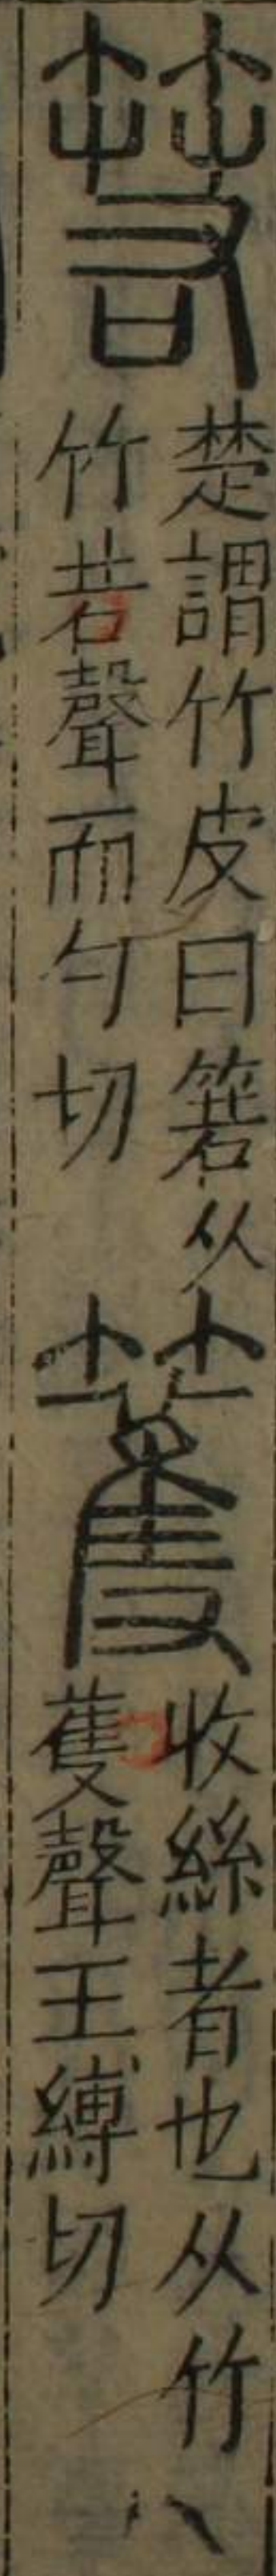 箬
楚謂竹皮曰箬从
竹若聲而勺切
籆
收絲者也从竹
蒦聲王縛切